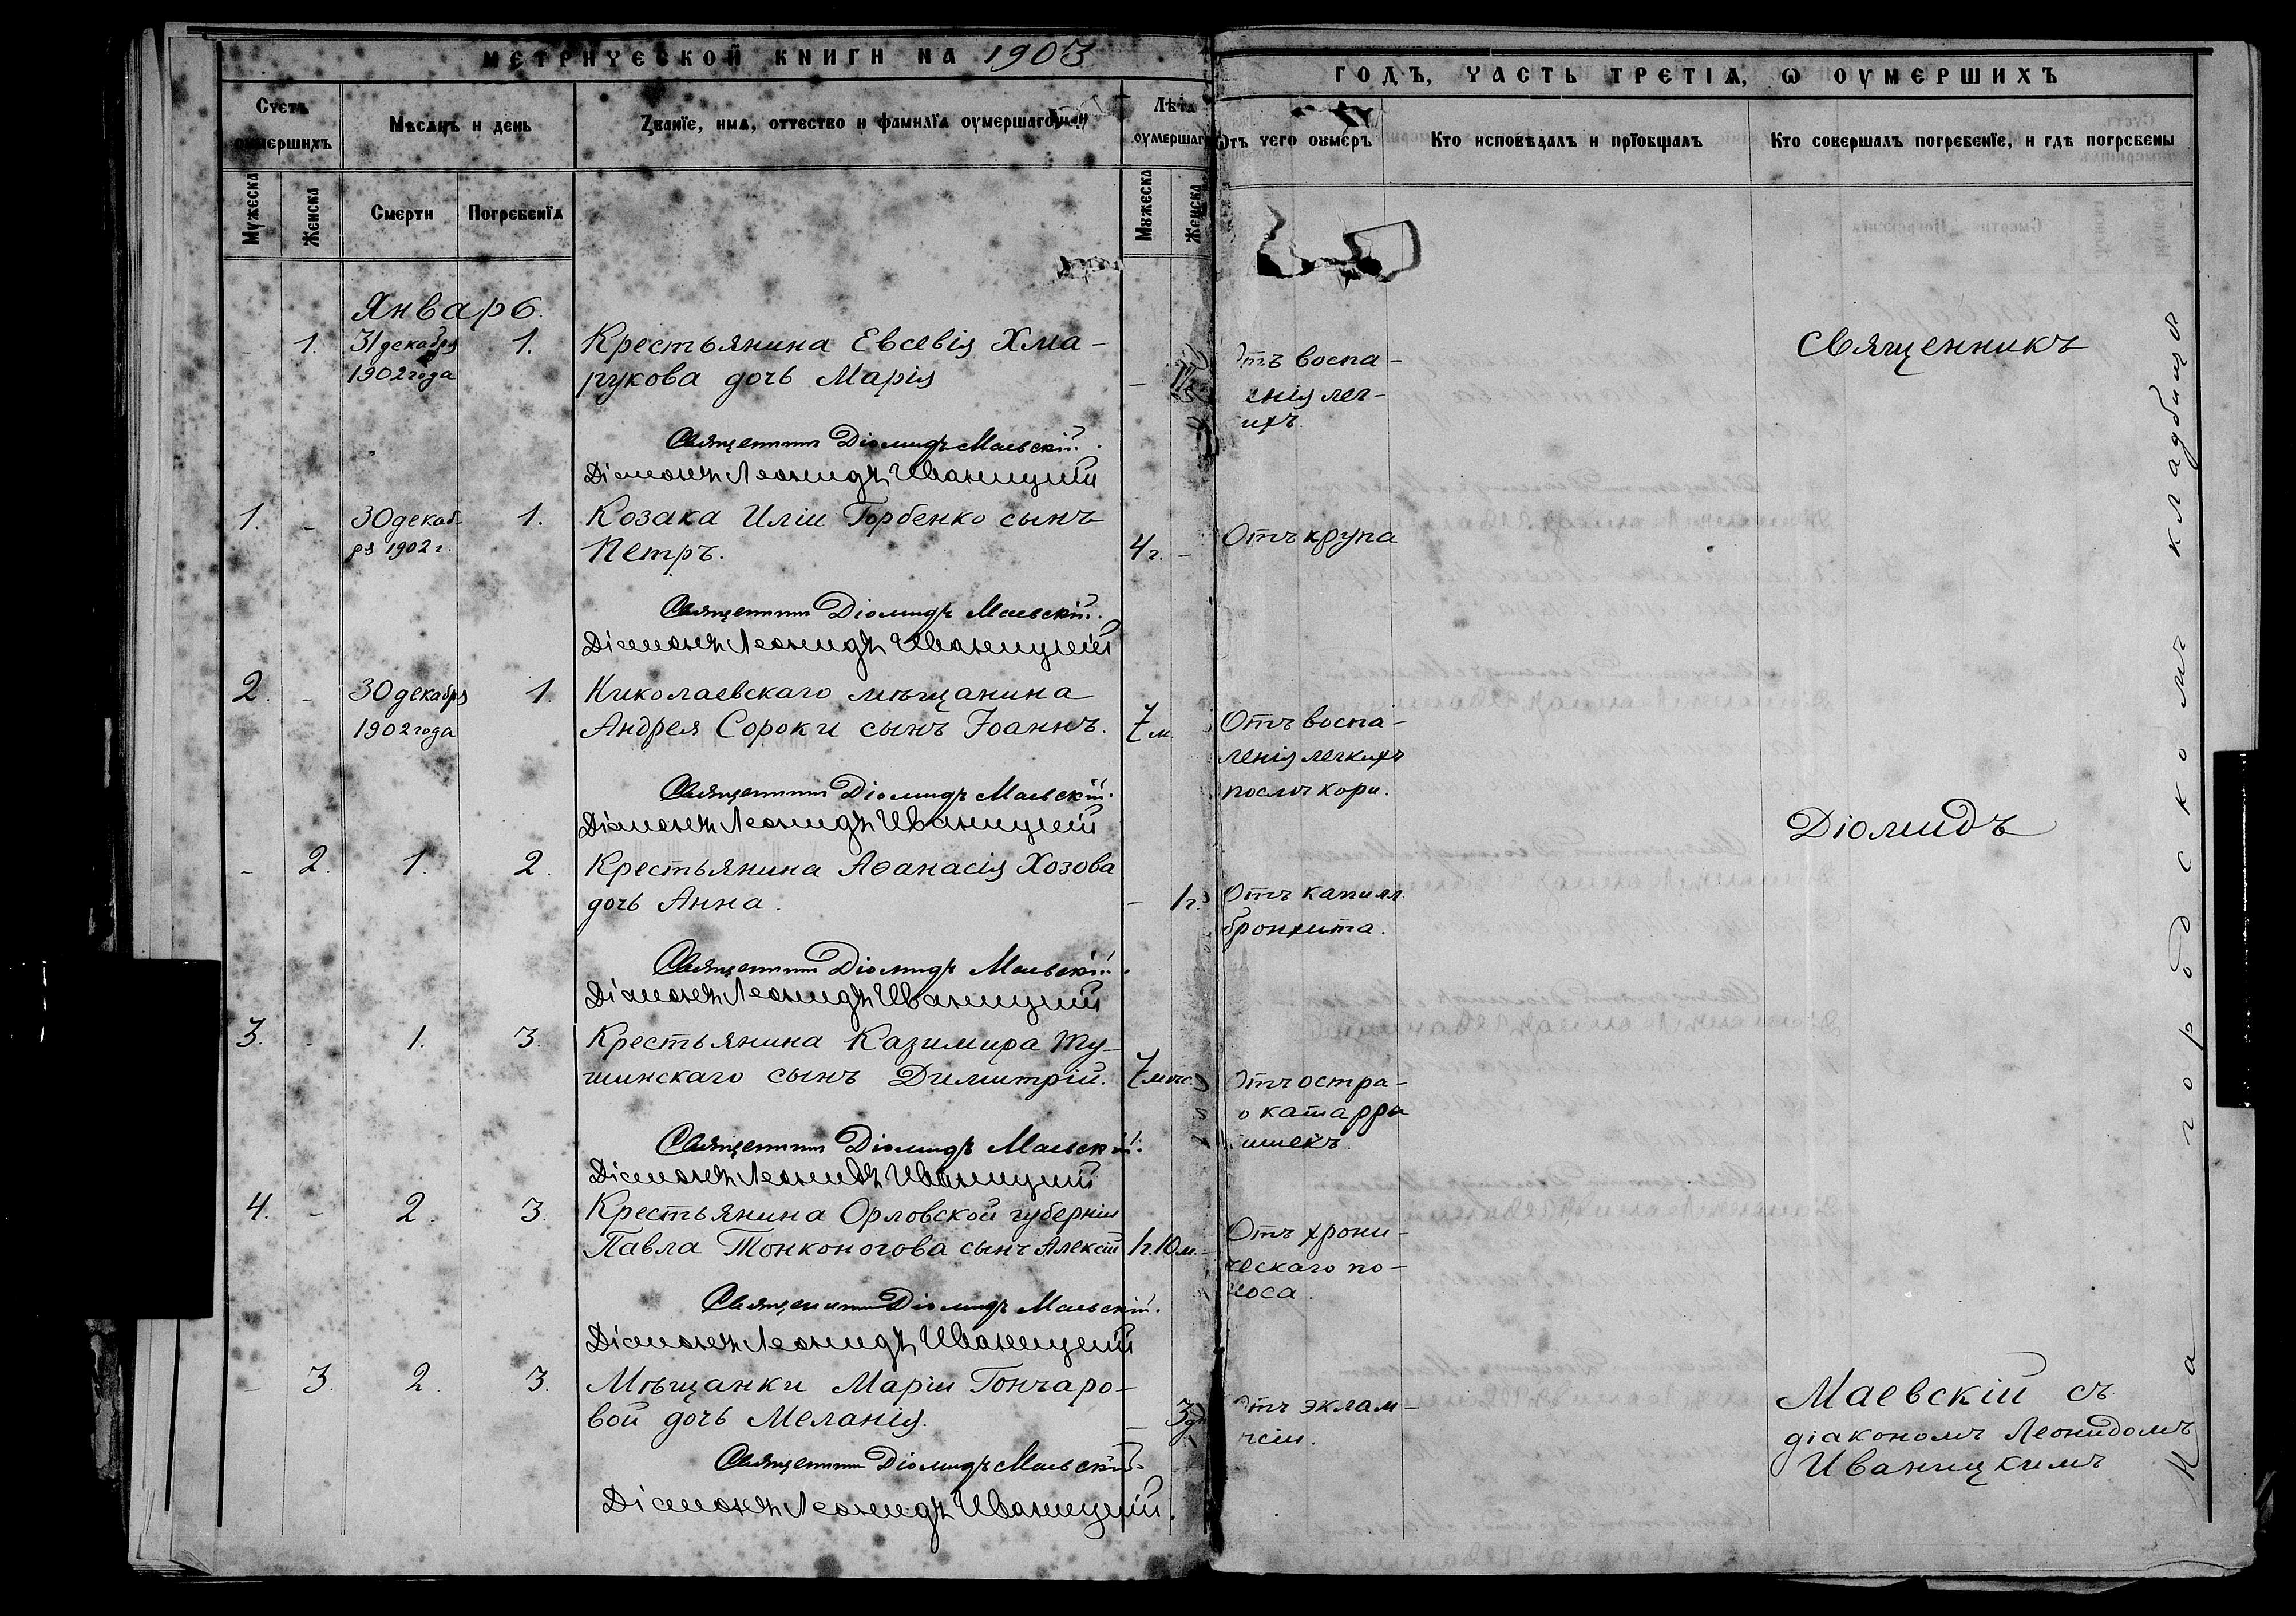 МЕТРИЧЕСКОЙ КНИГИ НА 1903
ГОДЪ, ЧАСТЬ ТРЕТІѦ, Ѡ ОУМЕРШИХЪ
Счетъ оумершихъ
Мѣсяцъ и день
Званїе, имѧ, отчество и фамилїѧ оумершаго
Лѣта оумершаго
Ѿтъ чего оумеръ
Кто исповѣдалъ и прїобщалъ
Кто совершалъ погребенїе, и гдѣ погребены
Мужеска
Женска
Смерти
Погребенїѧ
Мужеска
Женска
Январь.
- 1. 31 декабря 1. Крестьянина Евсевія Хма-
1902 года рукова дочь Марія -
Отъ воспа-
енія лег-
ихъ.
Священникъ Діомидъ Маевскій.
Діаконъ Леонидъ Иваницкій
1. - 30 декаб- 1. Козака Иліи Горбенко сынъ
ря 1902 г. Петръ. 4 г. - Отъ крупа
Священникъ Діомидъ Маевскій.
Діаконъ Леонидъ Иваницкій
2. - 30 декабря 1. Николаевскаго мѣщанина
1902 года Андрея Сороки сынъ Іоаннъ. 7 м.
Отъ воспа-
ленія легкихъ
послѣ кори.
Священникъ Діомидъ Маевскій.
Діаконъ Леонидъ Иваницкій
- 2. 1. 2. Крестьянина Аѳанасія Хозова
дочь Анна. - 1 г.
Отъ капилл.
бронхита.
Священникъ Діомидъ Маевскій.
Діаконъ Леонидъ Иваницкій
3. - 1. 3. Крестьянина Казимира Ту-
шинскаго сынъ Димитрій. 7 мѣс.
Отъ остра-
о катарра
ишекъ.
Священникъ Діомидъ Маевскій.
Діаконъ Леонидъ Иваницкій
4. - 2. 3. Крестьянина Орловской губерніи
Павла Тонконогова сынъ Алексій 1 г. 10 м. -
Отъ хрони-
ческаго по-
носа.
Священникъ Діомидъ Маевскій.
Діаконъ Леонидъ Иваницкій
- 3. 2. 3. Мѣщанки Маріи Гончаро-
вой дочь Меланія. - 3 дн
Отъ эклам-
псіи.
Священникъ Діомидъ Маевскій.
Діаконъ Леонидъ Иваницкій.
Священникъ
Діомидъ
Маевскій съ
діакономъ Леонидомъ
Иваницкимъ
На городскомъ кладбищѣ